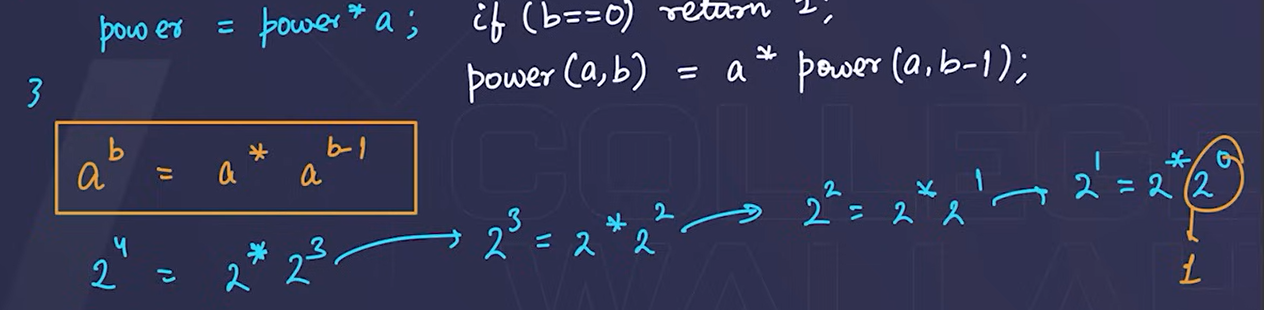 power = power * a;
if (b==0) return 1;
power(a,b) = a * power(a,b-1);
3
a^b = a * a^b-1
2^4 = 2 * 2^3
2^3 = 2 * 2^2
2^2 = 2 * 2^1
2^1 = 2 * 2^0
1
COLLEGE
WALLAH